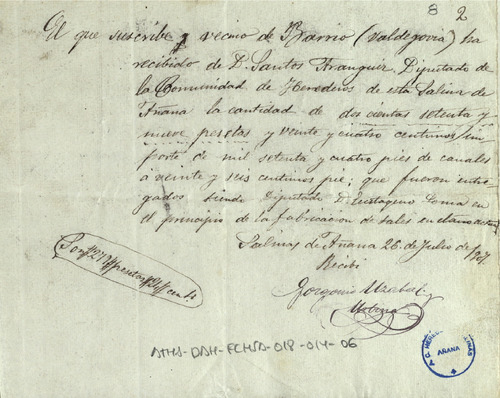 8 2
El que suscribe y vecino de Barrio (Valdegovia) ha
recibido de D. Santos Aranguiz, Diputado de
la Comunidad de Herederos de esta Salina de
Añana la cantidad de dos cientas setenta y
nueve pesetas y veinte y cuatro centimos, im
porte de mil setenta y cuatro pies de canales
a veinte y seis centimos pie; que fueron entre
gados siendo Diputado D. Eustaquio Loma en
el principio de la fabricacion de sales en
Salinas de Añana 26 de Julio de
Recibí
Gorgonio
Son 279 pesetas 24 cents
ATHA-DAH-FCHSA-018-014-06
AÑANA